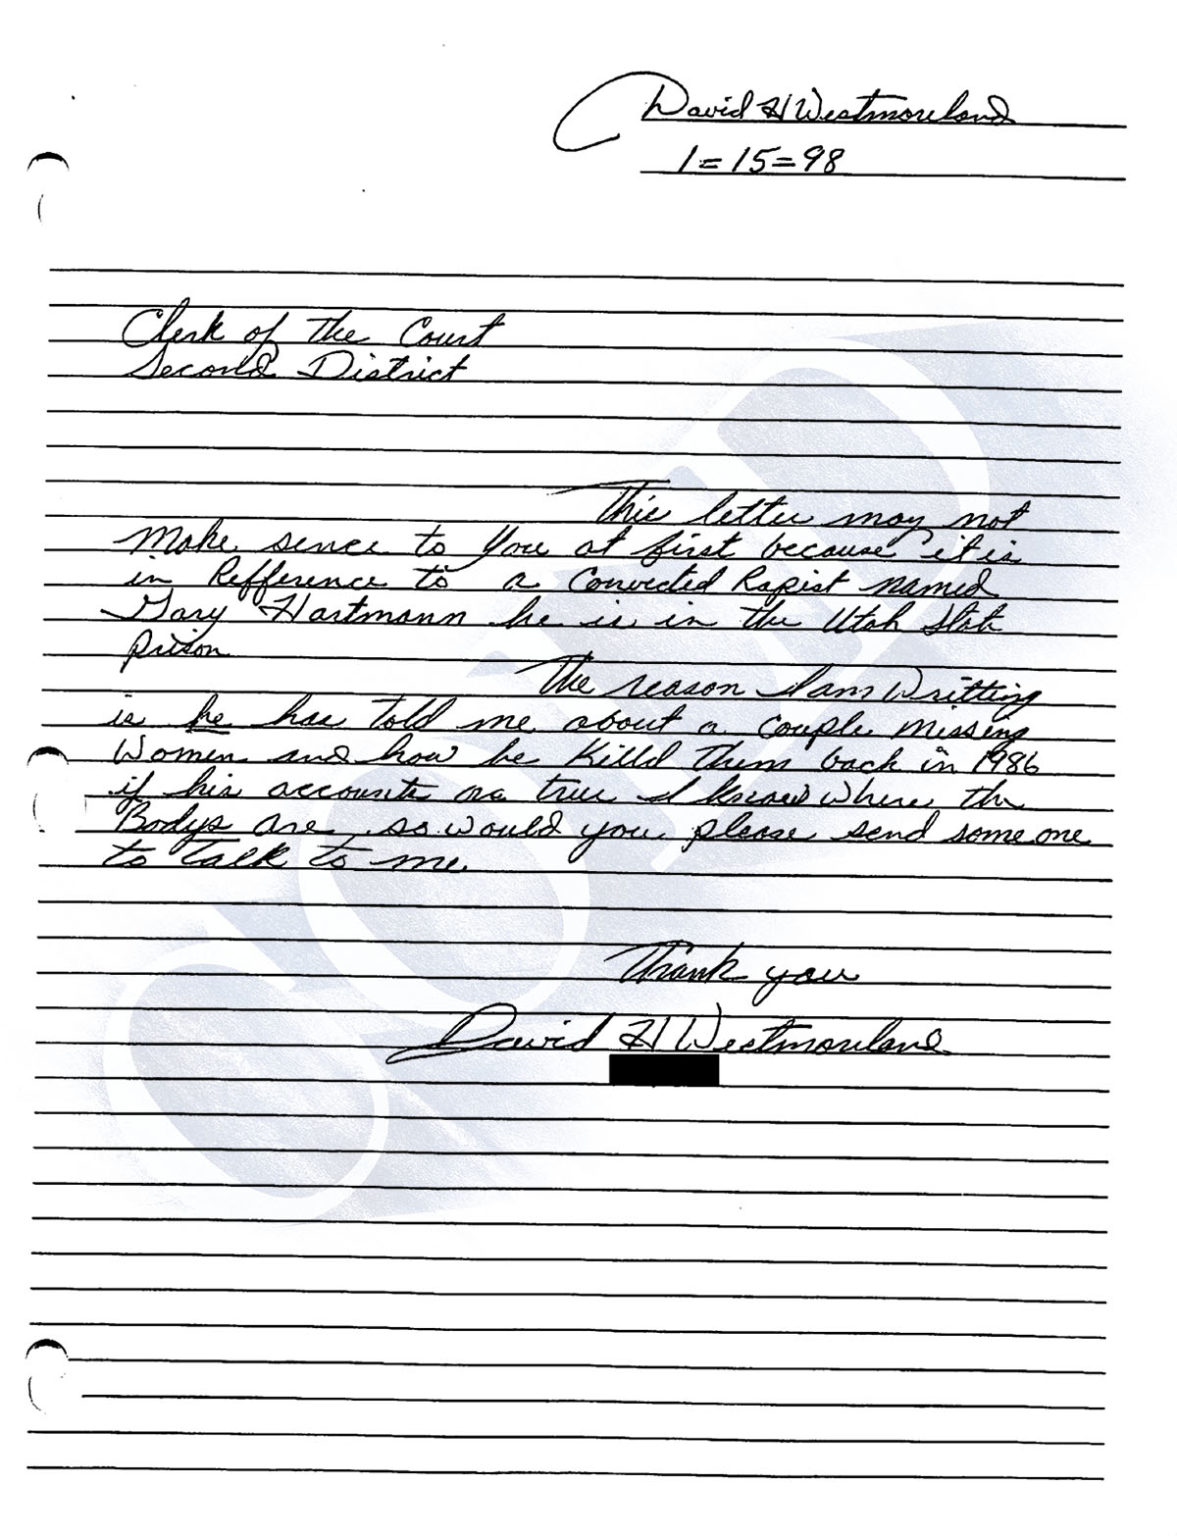 David H Westmoreland
1=15=98
Clerk of the Court
Second District
This letter may not
make sence to you at first because it is
in Refference to a Convicted Rapist named
Gary Hartmann he is in the Utah State
prison
The reason I am Writting
is he has told me about a couple missing
Women and how he killd them back in 1986
if his accounts are true I know where the
Bodys are, so would you please send someone
to talk to me.
Thank you
David H Westmoreland
COLD